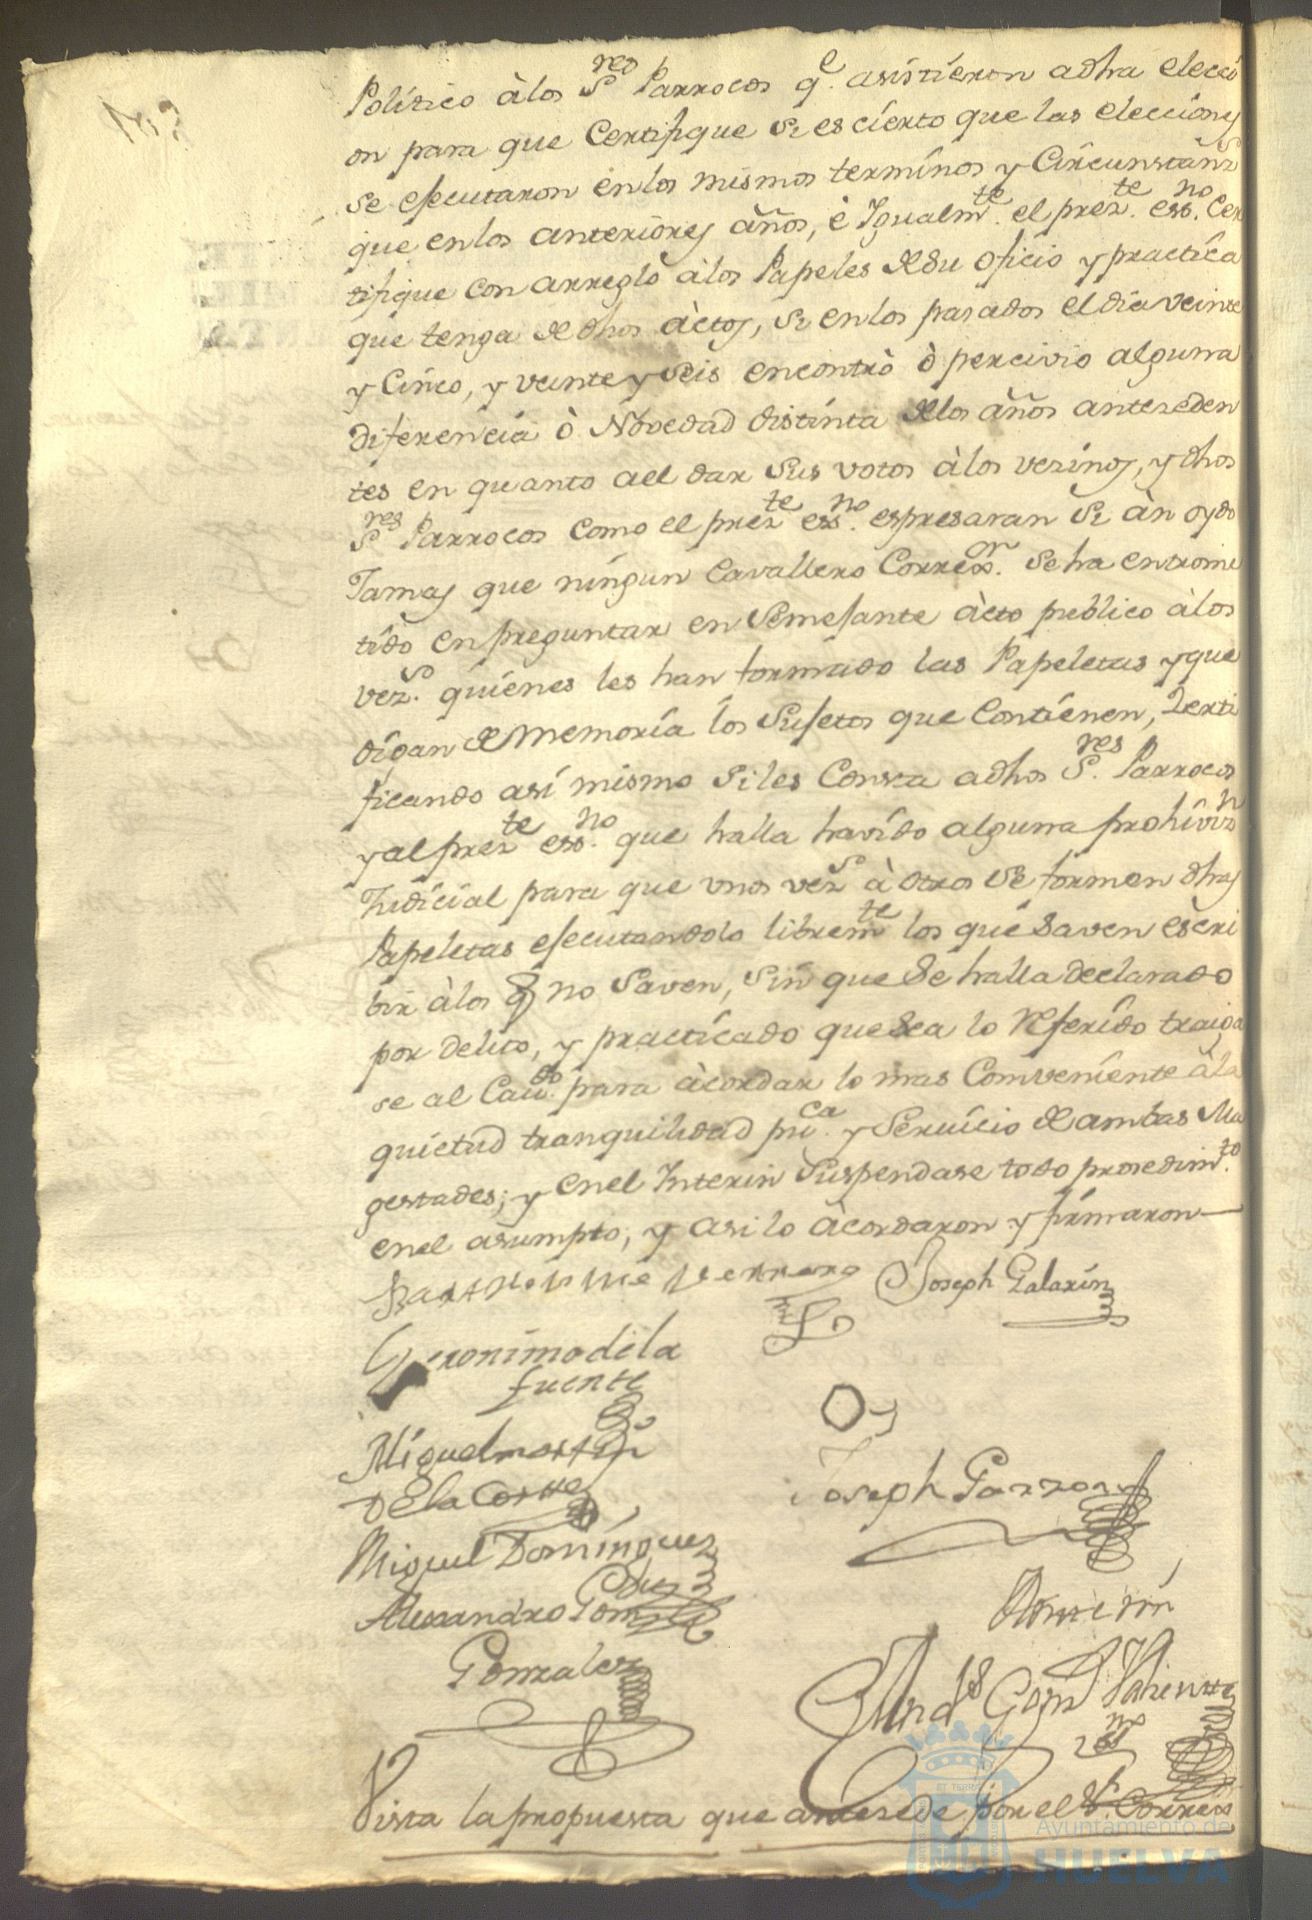 Politico à los S.res Parrocos q.e asistieron a dha elecci
on para que Certifique si es cierto que las elecciones
se ejecutaron en los mismos terminos y Circunstan.s
que en los anteriores años, è Igualm.te el prez.te ess.no Cer
tifique con arreglo à los Papeles de su oficio y practica
que tenga de dhos àctos, si en los pasados el dia veinte
y Cinco, y veinte y seis encontrò ò percivio alguna
diferencia ò Novedad distinta de los años anteseden
tes en quanto a el dar sus votos à los vezinos, y dhos
S.res Parrocos como el prez.te ess.no espresaran si àn oydo
Jamas que ningun Cavallero Correx.or se ha entrome
tido en preguntar en semejante àcto publico à los
vez.s quienes les han formado las Papeletas y que
digan de memoria los sujetos que contienen, Zerti
ficando asi mismo si les Consta a dhos S.res Parrocos
y al prez.te ess.no que halla havido alguna prohiviz.n
Judicial para que unos vez.s à otros se formen dhas
Papeletas ejecutandolo librem.te los que saven escri
bir à los q no saven, sin que se halla declarado
por delito, y practicado que sea lo referido traiga
se al Cav.do para àcordar lo mas Comveniente à la
quietud tranquilidad pu.ca y servicio de ambas Ma
gestades; y en el Interin suspendase todo prosedim.to
en el asumpto, y asi lo àcordaron y firmaron
Barttholome Herrera Joseph Galarin
Geronimo de la
fuente
Miguel martin
De la Cortte Joseph Garzon
Miguel Dominguez
Alexandro Gom
Gonzalez
And.s Gom Valiente
Vista la propuesta que antesede por el S.r Correx
ET TERRÆ
Ayuntamiento de
HUELVA